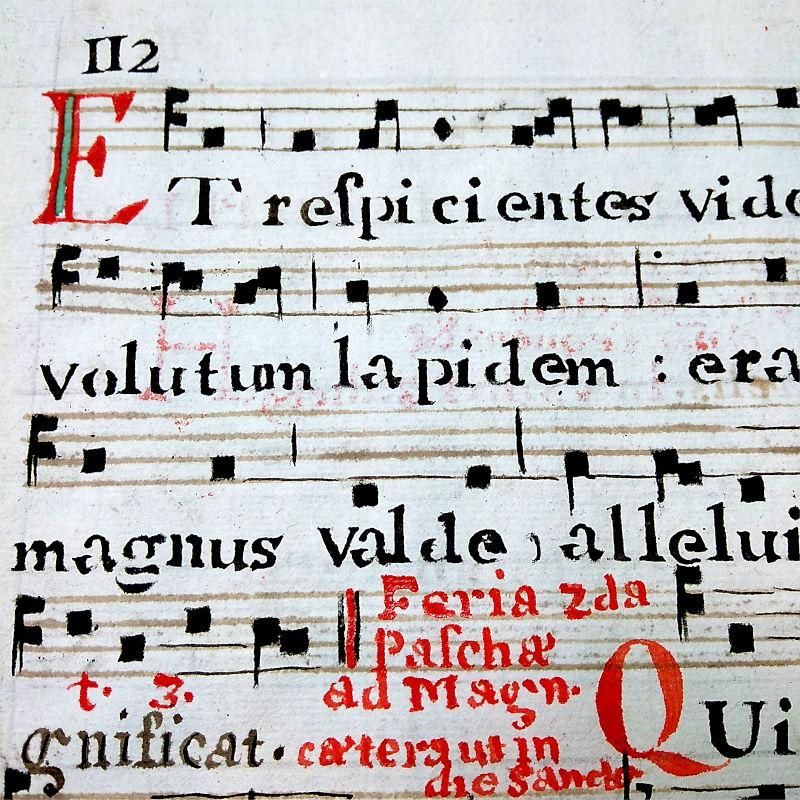 112
ET reſpicientes vide
volutum lapidem : era
magnus valde, allelui
Feria 2da
Paſchæ
t. 3.
ad Magn.
Qui
gnificat. cætera ut in
die Sancto